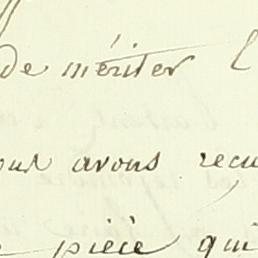 de mériter l
ous avons reçu
pièce qui